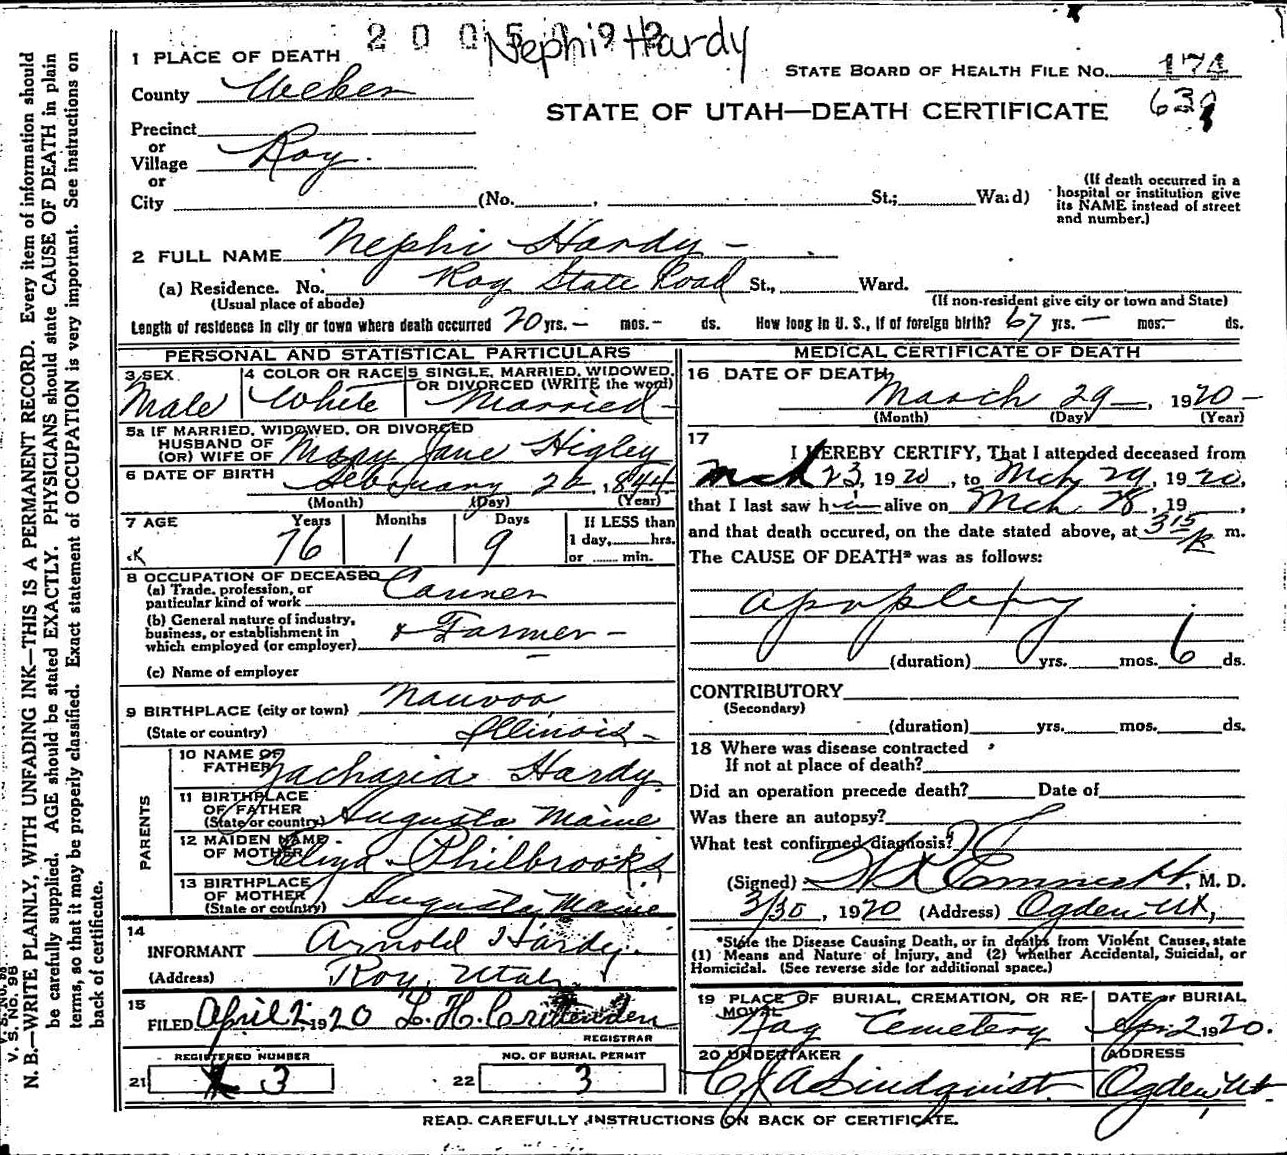 2005
Nephi Hardy
1 PLACE OF DEATH
STATE BOARD OF HEALTH FILE No. 174
County Weber
639
STATE OF UTAH—DEATH CERTIFICATE
Precinct
or
Village Roy.
or
City (No. , St.; Ward)
(If death occurred in a
hospital or institution give
its NAME instead of street
and number.)
2 FULL NAME Nephi Hardy —
(a) Residence. No. Roy State Road St., Ward.
(Usual place of abode)
(If non-resident give city or town and State)
Length of residence in city or town where death occurred 20 yrs. — mos. — ds. How long in U. S., if of foreign birth? 67 yrs. — mos. — ds.
PERSONAL AND STATISTICAL PARTICULARS
3 SEX
Male
4 COLOR OR RACE
White
5 SINGLE, MARRIED, WIDOWED,
OR DIVORCED (WRITE the word)
Married —
5a IF MARRIED, WIDOWED, OR DIVORCED
HUSBAND OF
(OR) WIFE OF Mary Jane Higley
6 DATE OF BIRTH February 20, 1844
(Month) (Day) (Year)
7 AGE Years Months Days
76 1 9
If LESS than
1 day, hrs.
or min.
8 OCCUPATION OF DECEASED
(a) Trade, profession, or
particular kind of work Canner
(b) General nature of industry,
business, or establishment in
which employed (or employer) & Farmer —
(c) Name of employer —
9 BIRTHPLACE (city or town) Nauvoo
(State or country) Illinois —
PARENTS
10 NAME OF
FATHER Zacharia Hardy
11 BIRTHPLACE
OF FATHER
(State or country) Augusta Maine
12 MAIDEN NAME
OF MOTHER Eliza Philbrooks
13 BIRTHPLACE
OF MOTHER
(State or country) Augusta Maine
14
INFORMANT Arnold Hardy.
(Address) Roy, Utah
15
FILED April 2 1920 L. H. Crittenden
REGISTRAR
REGISTERED NUMBER
21 3
NO. OF BURIAL PERMIT
22 3
MEDICAL CERTIFICATE OF DEATH
16 DATE OF DEATH
March 29 —, 1920 —
(Month) (Day) (Year)
17
I HEREBY CERTIFY, That I attended deceased from
Mch 23, 1920, to Mch 29, 1920,
that I last saw him alive on Mch 28, 19 ,
and that death occured, on the date stated above, at 3 15 m.
The CAUSE OF DEATH* was as follows:
apoplexy
(duration) yrs. mos. 6 ds.
CONTRIBUTORY
(Secondary)
(duration) yrs. mos. ds.
18 Where was disease contracted
If not at place of death?
Did an operation precede death? Date of
Was there an autopsy?
What test confirmed diagnosis?
(Signed) , M. D.
3/30, 1920 (Address) Ogden Ut,
*State the Disease Causing Death, or in deaths from Violent Causes, state
(1) Means and Nature of Injury, and (2) whether Accidental, Suicidal, or
Homicidal. (See reverse side for additional space.)
19 PLACE OF BURIAL, CREMATION, OR RE-
MOVAL
Cemetery
DATE OF BURIAL
Apr. 2 1920.
20 UNDERTAKER
C. J. A. Lindquist.
ADDRESS
Ogden, Ut.
READ CAREFULLY INSTRUCTIONS ON BACK OF CERTIFICATE.
V. S. NO. 98
N. B.—WRITE PLAINLY, WITH UNFADING INK—THIS IS A PERMANENT RECORD. Every item of information should
be carefully supplied. AGE should be stated EXACTLY. PHYSICIANS should state CAUSE OF DEATH in plain
terms, so that it may be properly classified. Exact statement of OCCUPATION is very important. See instructions on
back of certificate.